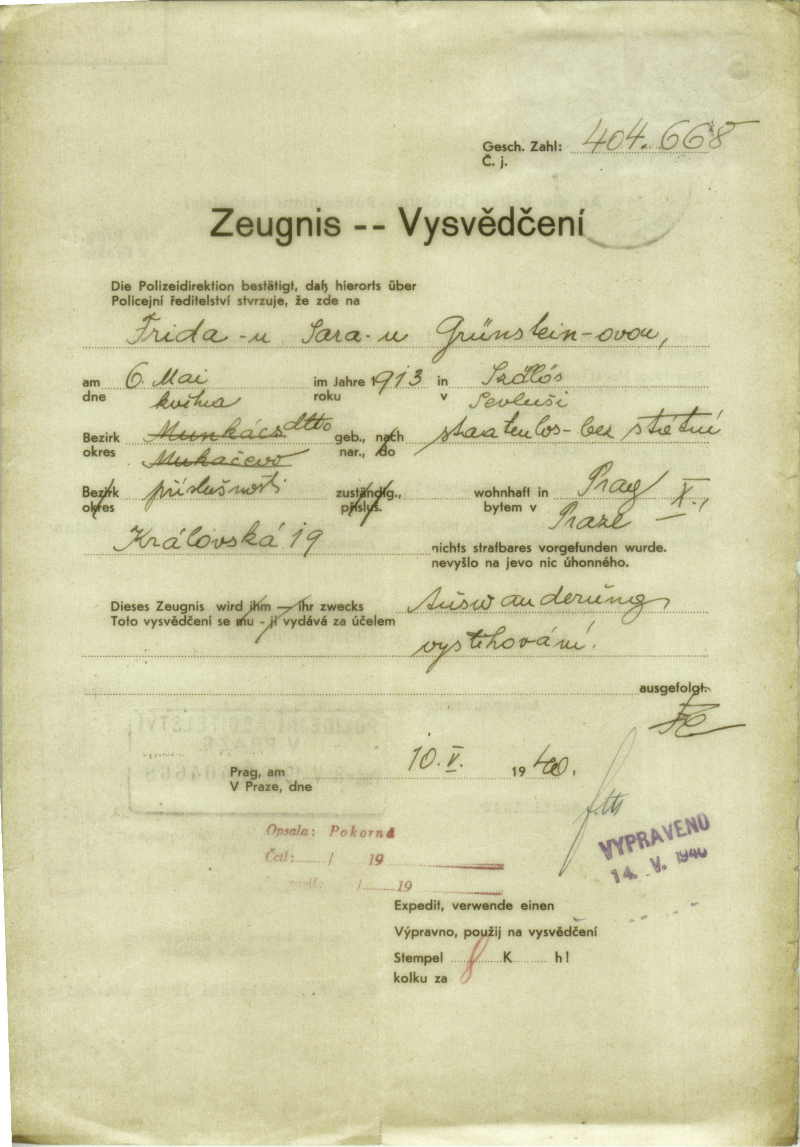 Gesch. Zahl: 404.668
Č. j.
Zeugnis -- Vysvědčení
Die Polizeidirektion bestätigt, daß hierorts über
Policejní ředitelství stvrzuje, že zde na
Frida-u Sara-u Grünstein-ovou,
am 6. Mai im Jahre 1913 in
dne května roku v Sevluši
Bezirk Munkács dtto geb., nach staatenlos - bez státní
okres Mukačevo nar., do
Bezirk příslušnosti zuständig., wohnhaft in Prag X.,
okres přísluš. bytem v Praze
Královská 19 nichts strafbares vorgefunden wurde.
nevyšlo na jevo nic úhonného.
Dieses Zeugnis wird ihm — ihr zwecks Auswanderung
Toto vysvědčení se mu - jí vydává za účelem
vystěhování.
ausgefolgt.
Prag, am 10. V. 1940.
V Praze, dne
Opsala: Pokorná
Četl: / 19
/ 19
VYPRAVENO
14. V. 1940
Expedit, verwende einen
Výpravno, použij na vysvědčení
Stempel 8 K h!
kolku za